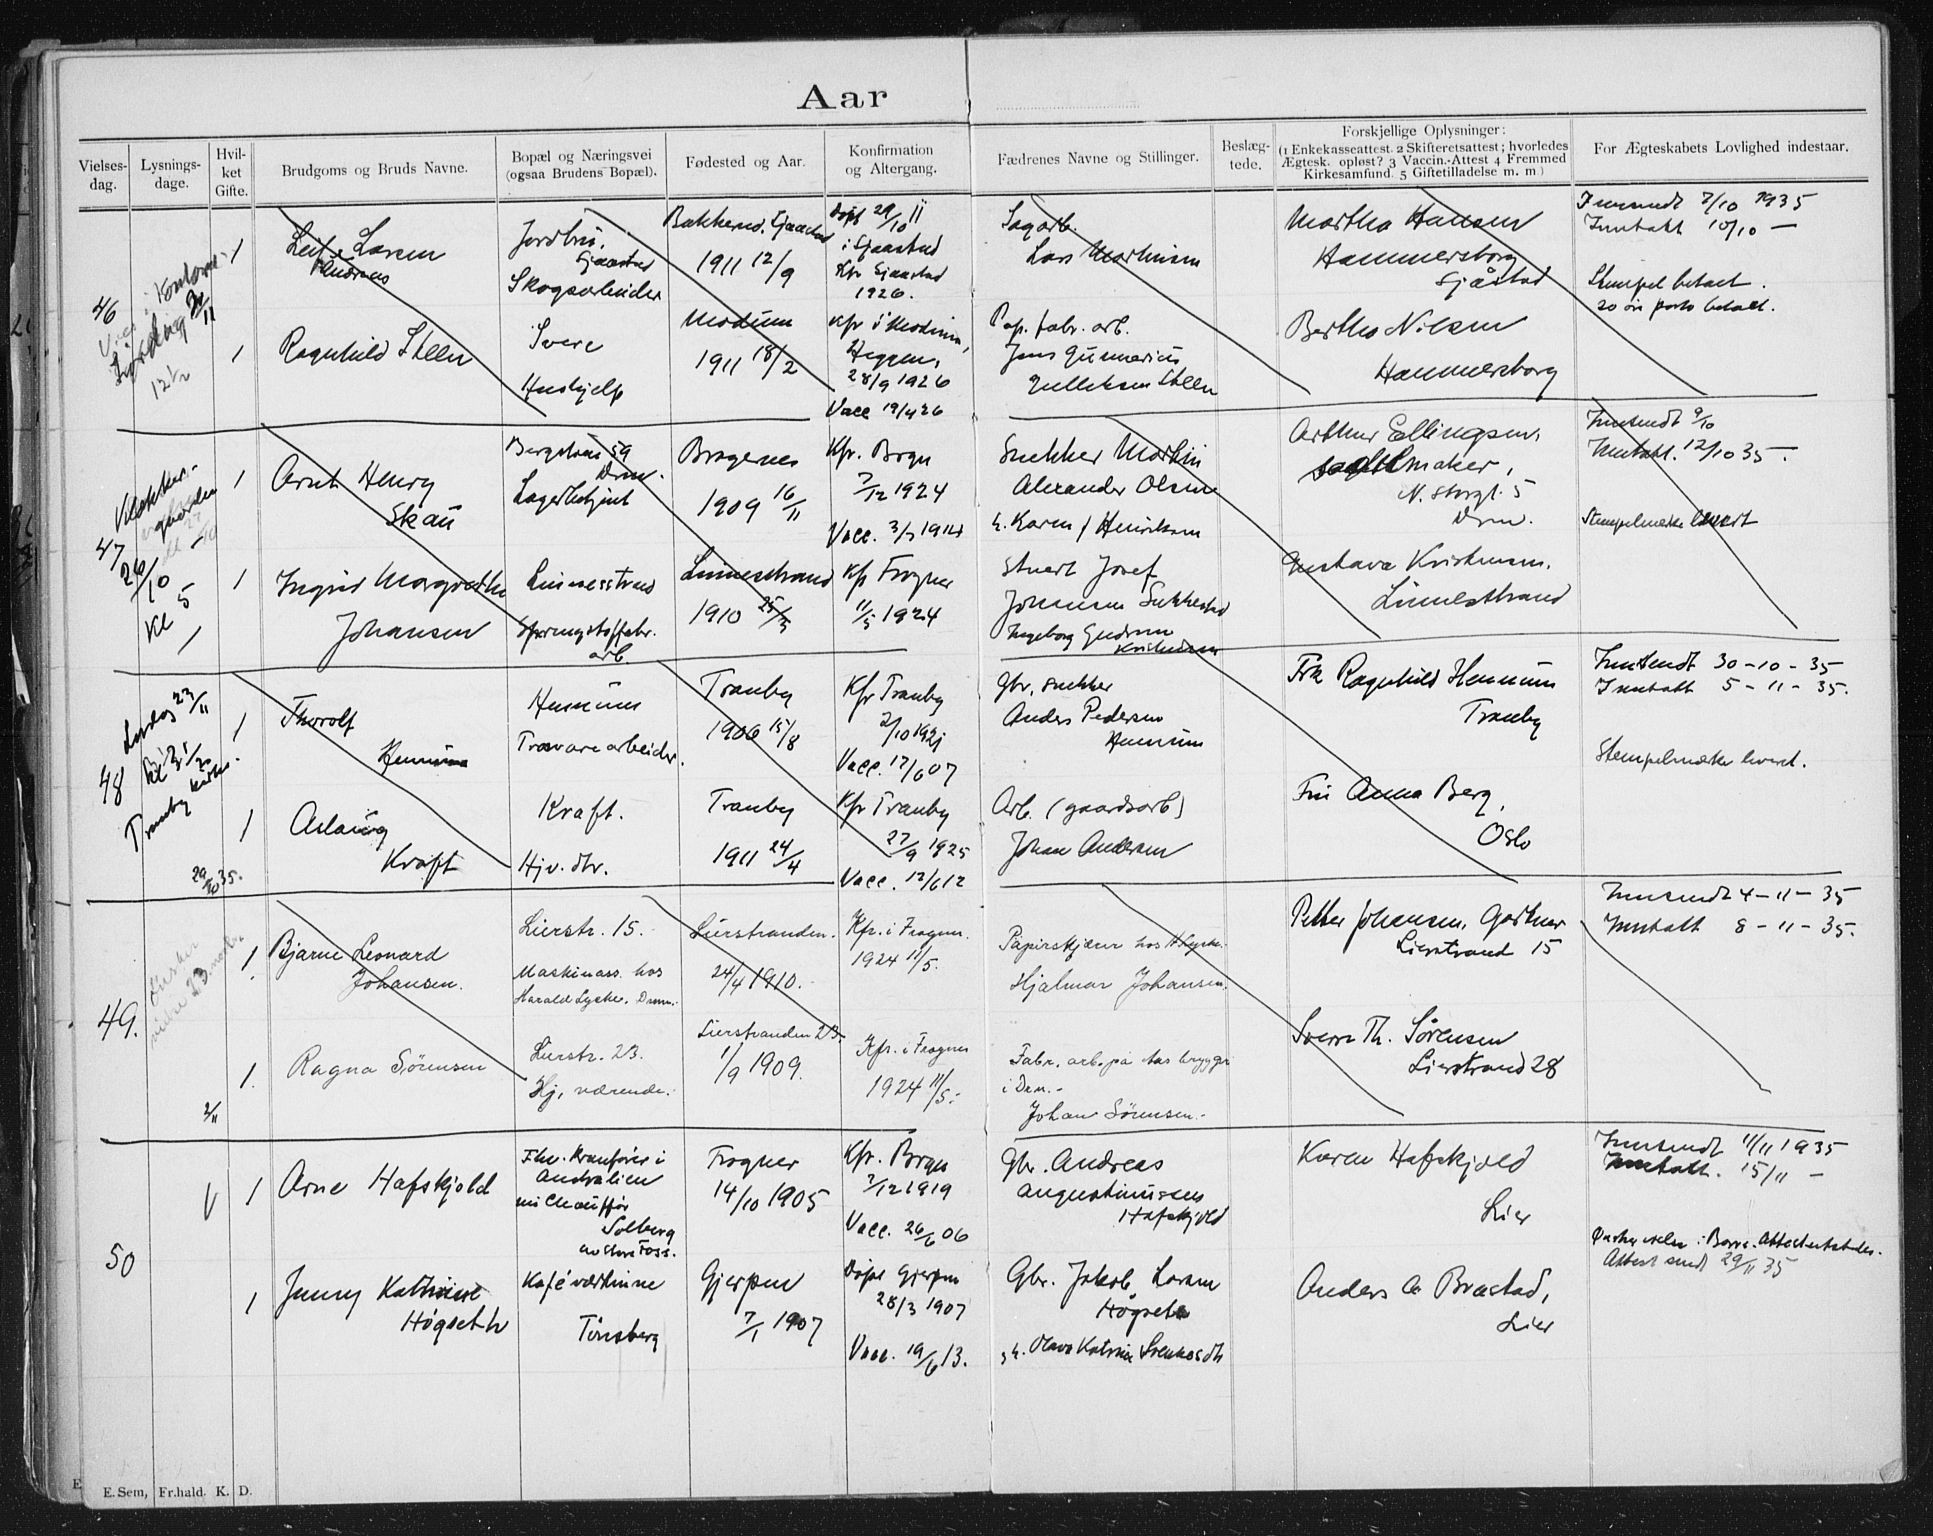 Aar
Vielses-
dag.
Lysnings-
dage.
Hvil-
ket
Gifte.
Brudgoms og Bruds Navne.
Bopæl og Næringsvei
(ogsaa Brudens Bopæl).
Fødested og Aar.
Konfirmation
og Altergang.
Fædrenes Navne og Stillinger.
Beslæg-
tede.
Forskjellige Oplysninger:
(1 Enkekasseattest. 2 Skifteretsattest; hvorledes
Ægtesk. opløst? 3 Vaccin.-Attest 4 Fremmed
Kirkesamfund. 5 Giftetilladelse m. m.)
For Ægteskabets Lovlighed indestaar.
46
Lørdag 2/11
12
1
Leif Larsen
Andreas
Gjaastad
Skogsarbeider
Bakkerud, Gjaastad
1911 12/9
Døpt 29/10 11
i Gjaastad
Kfr Gjaastad
1926.
Sagarb.
Lars Martinsen
Martha Hansen
Hammersborg
Gjåstad
Innsendt 7/10 1935
Inntatt 10/10 —
Stempel betalt.
20 øre porto betalt.
1
Ragnhild Steen
Svere
Hushjelp
Modum
1911 18/2
Kfr i Modum,
Heggen,
28/9 1926
Vacc 19/4 26
Pap. fabr. arb.
Jens Gunnerius
Gulliksen Steen
Bertha Nilsen
Hammersborg
47
Klokker-
gaarden
26/10
Kl 5
1
Arnt Henry
Skau
Bergstien 59
Drm.
Lagerbetjent
Bragernes
1909 16/11
Kfr. Bragn
7/12 1924
Vacc. 3/7 1914
Snekker Martin
Alexander Olsen
h. Karen / Henriksen
Arthur Ellingsen,
maker,
N. Storgt. 5
Drm.
Innsendt 9/10
Inntatt. 12/10 35. —
Stempelmerke levert
1
Ingrid Margrethe
Johansen
Linnesstrand
Sprengstoffabr.
arb.
Linnesstrand
1910 25/3
Kfr Frogner
11/5 1924
Stuert Josef
Johansen Sukkestad
Ingeborg Gudrun
Kristensen
Gustava Kristensen.
Linnesstrand
48
Lørdag 23/11
Tranby kirke.
29/10 35.
1
Thorolf
Hennum
Hennum
Trævarearbeider.
Tranby
1906 15/8
Kfr Tranby
2/10 1921
Vacc. 17/6 07
Gbr, snekker
Anders Pedersen
Hennum
Frk Ragnhild Hennum
Tranby
Innsendt 30-10-35
Inntatt 5-11-35.
Stempelmerke levert.
1
Aslaug
Kraft
Kraft.
Hjv. dtr.
Tranby
1911 24/4
Kfr Tranby
27/9 1925
Vacc. 12/6 12
Arb. (gaardsarb)
Johan Andersen
Fru Anna Berg,
Oslo
49.
2/11
1.
Bjarne Leonard
Johansen.
Lierstr. 15.
Maskinass. hos
Harald Lyche, Dramn.
Lierstranden.
24/4 1910.
Kfr. i Frogner
1924 11/5.
Papirskjærer hos H. Lyche.
Hjalmar Johansen.
Petter Johansen, Gartner
Lierstrand 15
Innsendt 4-11-35
Inntatt 8-11-35.
1.
Ragna Sørensen
Lierstr. 23.
Hj, værende.
Lierstranden 23.
1/9 1909.
Kfr. i Frogner
1924 11/5.
Fabr. arb. på Aas brygge
i Drm.
Johan Sørensen.
Sverre Th. Sørensen
Lierstrand 28
50
V
1
Arne Hafskjold
Fhv. Kranfører i
Australien
nu Chauffør
Solberg
Frogner
14/10 1905
Kfr. Bragn
7/12 1919
Vacc. 26/6 06
Gbr. Andreas
Augustinussen
Hafskjold
Karen Hafskjold
Lier
Innsendt 11/11 1935
Inntatt. 15/11 —
Attest sendt 29/11 35
1
Jenny Kathrine
Høgseth
Kaféværtinne
Tønsberg
Gjerpen
7/1 1907
Døpt Gjerpen
28/3 1907
Vacc. 19/6 13.
Gbr. Jakob Larsen
Høgseth
Anders A Brastad,
Lier
E. Sem, Fr.hald. K. D.